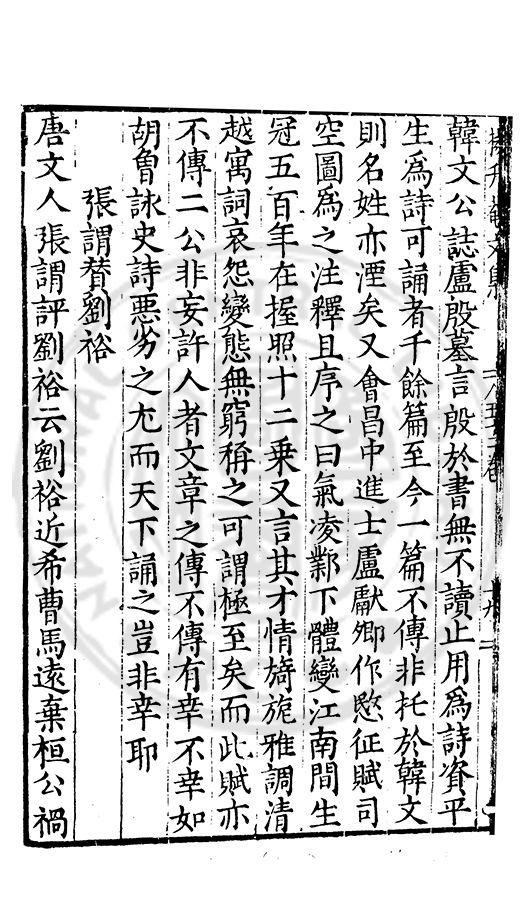 韓文公誌盧殷墓言殷於書無不讀止用為詩資平
生為詩可誦者千餘篇至今一篇不傳非托於韓文
則名姓亦湮矣又會昌中進士盧獻卿作愍征賦司
空圖為之注釋且序之曰氣凌鄴下體變江南間生
冠五百年在握照十二乗又言其才情旖旎雅調清
越寓詞哀怨變態無窮稱之可謂極至矣而此賦亦
不傳二公非妄許人者文章之傳不傳有幸不幸如
胡魯詠史詩悪劣之尤而天下誦之豈非幸耶
張謂賛劉裕
唐文人張謂評劉裕云劉裕近希曹馬遠棄桓公禍